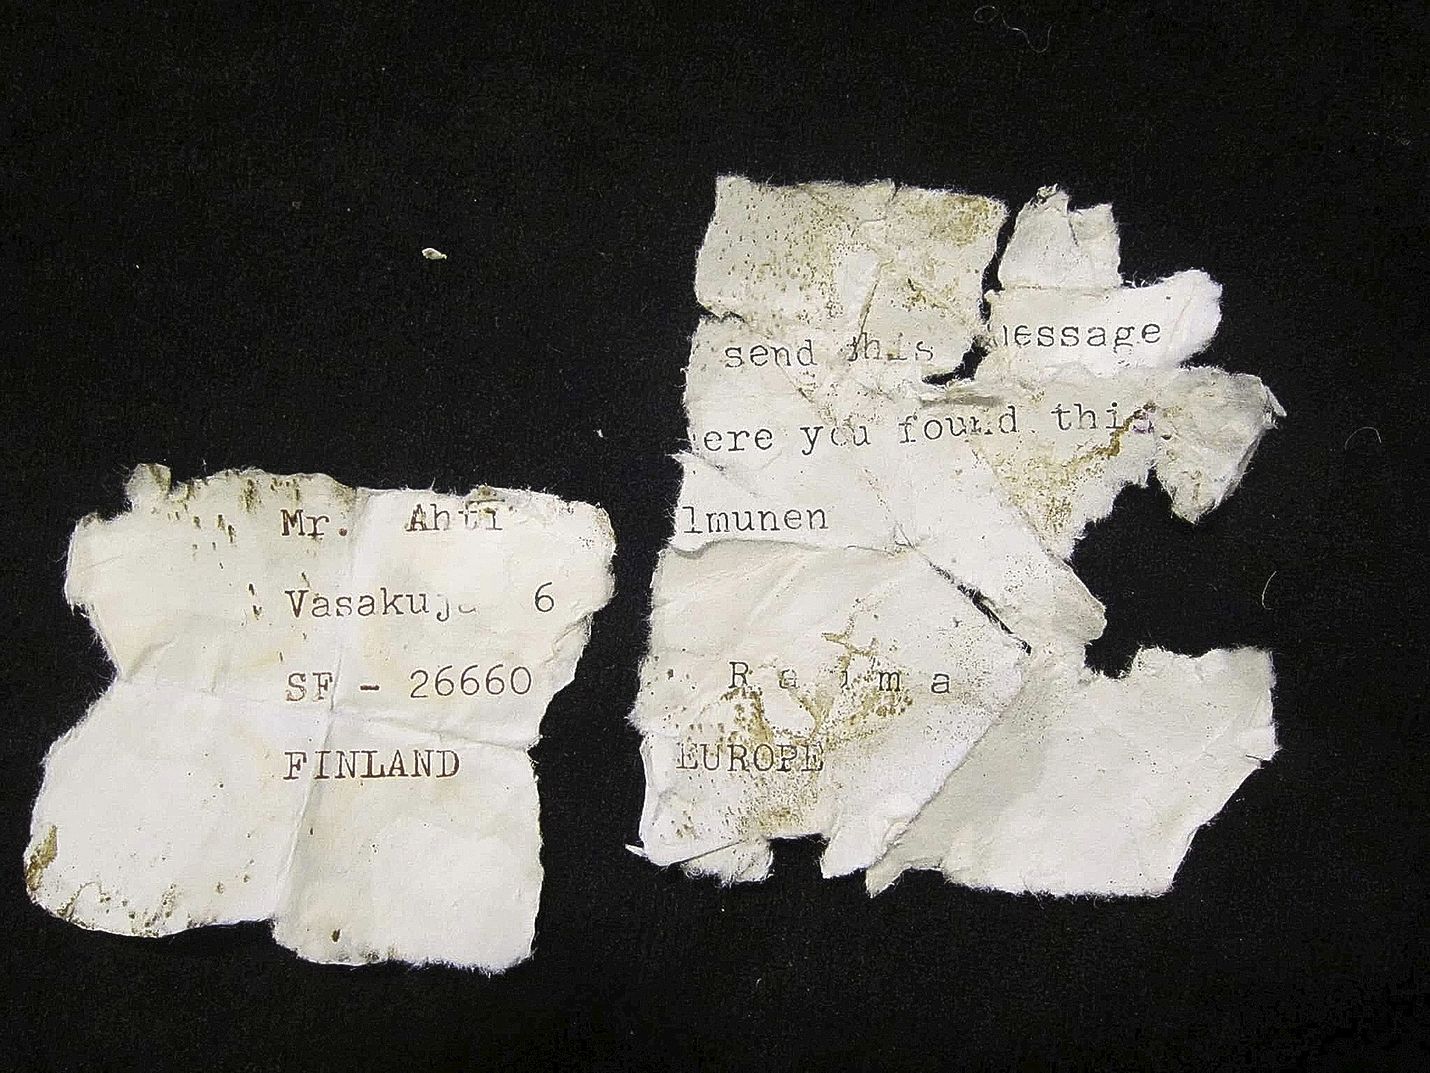 Mr. Ahti
Vasakuj 6
SF - 26660
FINLAND
send this essage
ere you found this
lmunen
R a i m a
EUROPE